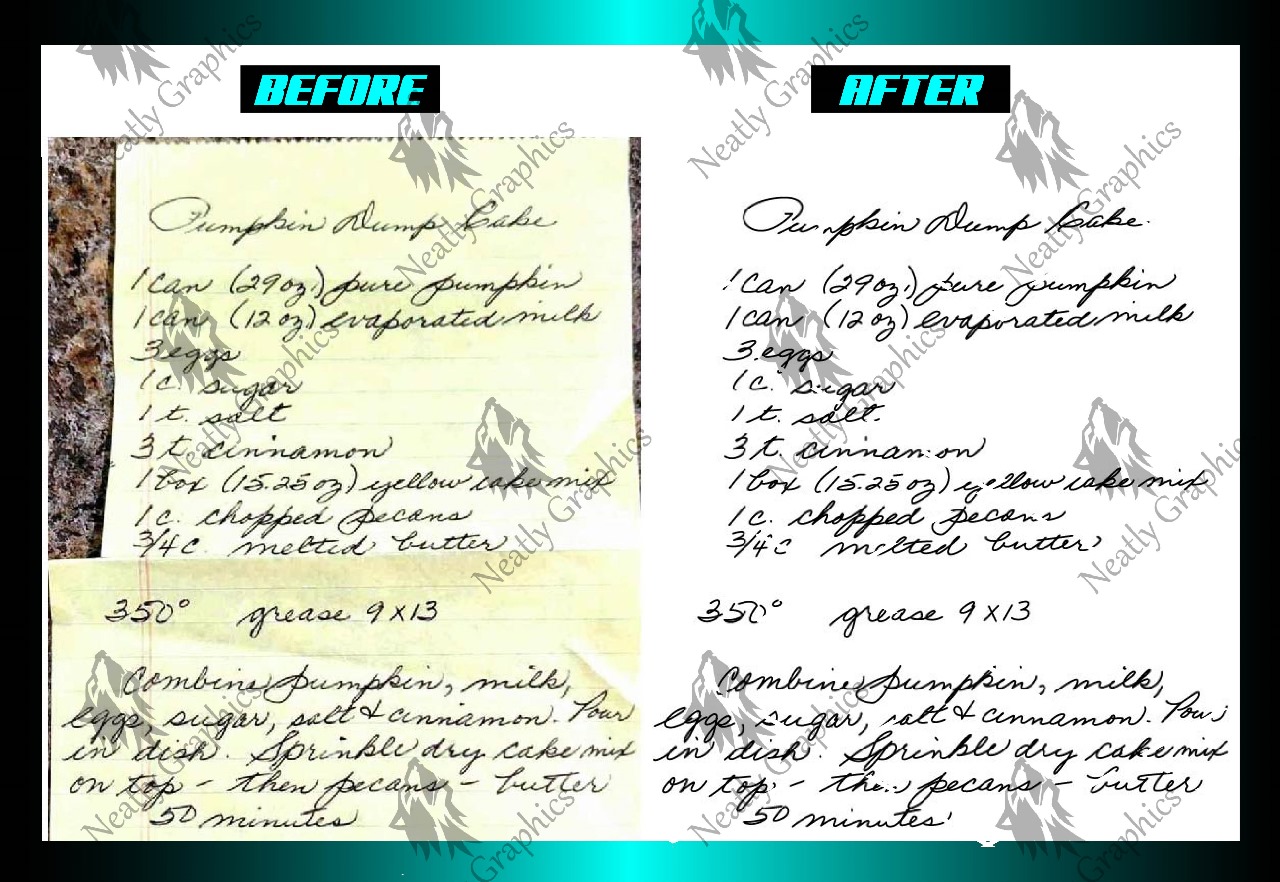 BEFORE
Pumpkin Dump Cake
1 can (29 oz.) pure pumpkin
1 can (12 oz) evaporated milk
3 eggs
1 c. sugar
1 t. salt
3 t. cinnamon
1 box (15.25 oz) yellow cake mix
1 c. chopped pecans
3/4 c. melted butter
350° grease 9 x 13
Combine pumpkin, milk,
eggs, sugar, salt & cinnamon. Pour
in dish. Sprinkle dry cake mix
on top - then pecans - butter
50 minutes
AFTER
Pumpkin Dump Cake
1 can (29 oz.) pure pumpkin
1 can (12 oz) evaporated milk
3 eggs
1 c. sugar
1 t. salt.
3 t. cinnamon
1 box (15.25 oz) yellow cake mix
1 c. chopped pecans
3/4 c melted butter
350° grease 9 x 13
Combine pumpkin, milk,
eggs, sugar, salt & cinnamon. Pour
in dish. Sprinkle dry cake mix
on top - then pecans - butter
50 minutes
Neatly Graphics
Neatly Graphics
Neatly Graphics
Neatly Graphics
Neatly Graphics
Neatly Graphics
Neatly Graphics
Neatly Graphics
Neatly Graphics
Neatly Graphics
Neatly Graphics
Neatly Graphics